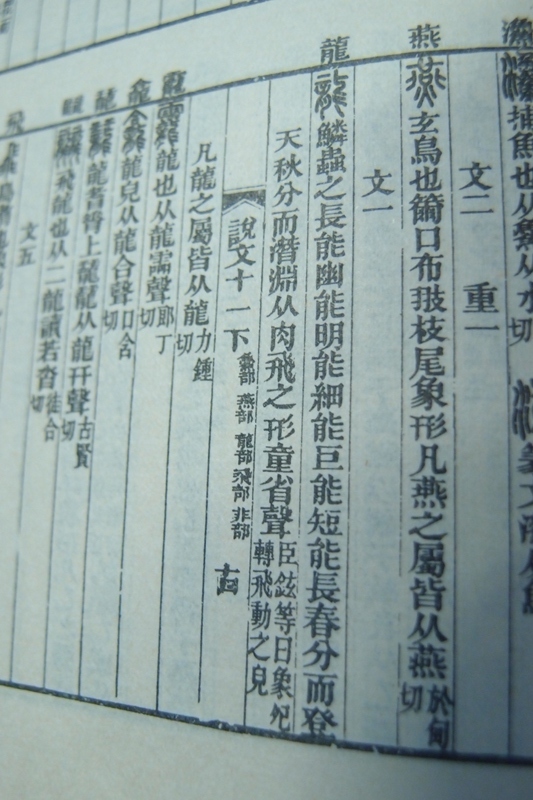 捕魚也从𩺰从水
切
文二 重一
燕
玄鳥也籋口布𦐂枝尾象形凡燕之屬皆从燕
於甸
切
文一
龍
鱗蟲之長能幽能明能細能巨能短能長春分而登
天秋分而潛淵从肉飛之形童省聲
臣鉉等曰象夗
轉飛動之皃
說文十一下
燕部 龍部 飛部 非部
凡龍之屬皆从龍
力鍾
切
龍也从龍霝聲
郎丁
切
龍皃从龍合聲
口含
切
龍耆脊上龖龖从龍幵聲
古賢
切
飛龍也从二龍讋若沓
徒合
切
文五